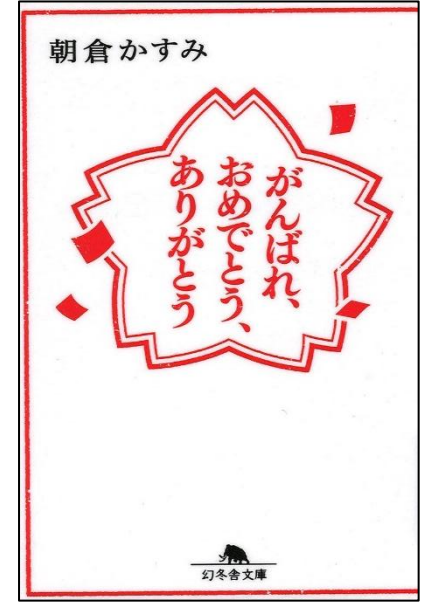 朝倉かすみ
がんばれ、
おめでとう、
ありがとう
幻冬舎文庫